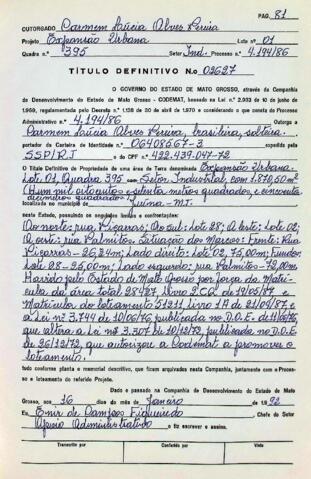 PAG. 81
OUTORGADO Carmem Lúcia Alves Pereira
Projeto Expansão Urbana Lote n.o 01
Quadra n.o 395 Setor Ind. Processo n.o 4.194/86
TÍTULO DEFINITIVO N.o 03627
O GOVERNO DO ESTADO DE MATO GROSSO, através da Companhia
de Desenvolvimento do Estado de Mato Grosso - CODEMAT, baseado na Lei n.o 2.903 de 10 de junho de
1.969, regulamentada pelo Decreto n.o 1.138 de 30 de abril de 1970 e considerando o que consta do Processo
Administrativo n.o 4.194/86 Outorga a
Carmem Lúcia Alves Pereira, brasileira, solteira.
portador da Carteira de Identidade n.o 06408667-3 expedida por
SSP/RJ e do CPF n.o 422.439.047-72
O Título Definitivo de Propriedade de uma área de Terra denominada Expansão Urbana.
Lote 01, Quadra 395 - Setor Industrial, com 1.870,50m²
(Hum mil oitocentos e setenta metros quadrados, e cincoenta
decímetros quadrados)
localizada no município de Juína - MT.
neste Estado, possuindo os seguintes limites e confrontações:
Ao norte: rua Piçarras; Ao sul: Lote 28; A leste: Lote 02;
A oeste: rua Palmitos. Situação dos Marcos: Frente: Rua
Piçarras - 26,24m; Lado direito: Lote 02, 75,00m; Fundos:
Lote 28 - 25,00m; Lado esquerdo: rua Palmitos - 72,00m
Havido pelo Estado de Mato Grosso por força da Matrí-
cula de área total 28427 livro 2 CQ de 19/05/87 e
Matrícula do loteamento 51211 livro 1A de 21/04/87 e
a Lei nº 3.744 de 10/06/76, publicada no D.O.E. de 11/06/76,
que altera a Lei nº 3.307 de 10/12/72, publicada no D.O.E
de 26/12/72 que autorizou a Codemat a promover o
loteamento.
tudo conforme planta e memorial descritivo, que ficam arquivados nesta Companhia, juntamente com o Proces-
so e loteamento do referido Projeto.
Dado e passado na Companhia de Desenvolvimento do Estado de Mato
Grosso, aos 16 dias do mês de Janeiro de 1.992
Eu Enir de Campos Figueiredo Chefe do Setor
Apoio Administrativo o fiz escrever e assino.
Transcrito por Conferido por Visto